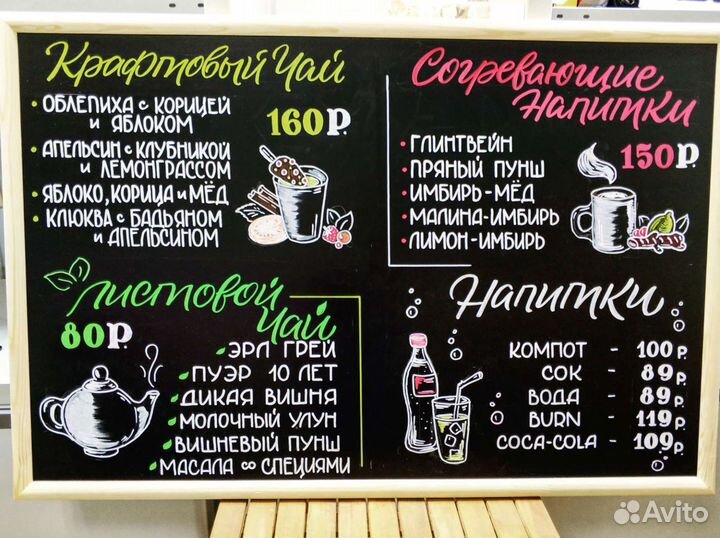 Крафтовый Чай
• ОБЛЕПИХА С КОРИЦЕЙ
И ЯБЛОКОМ
160Р.
• АПЕЛЬСИН С КЛУБНИКОЙ
И ЛЕМОНГРАССОМ
• ЯБЛОКО, КОРИЦА И МЁД
• КЛЮКВА С БАДЬЯНОМ
И АПЕЛЬСИНОМ
Согревающие
Напитки
150Р.
• ГЛИНТВЕЙН
• ПРЯНЫЙ ПУНШ
• ИМБИРЬ-МЁД
• МАЛИНА-ИМБИРЬ
• ЛИМОН-ИМБИРЬ
Листовой
Чай
80Р.
ЭРЛ ГРЕЙ
ПУЭР 10 ЛЕТ
ДИКАЯ ВИШНЯ
МОЛОЧНЫЙ УЛУН
ВИШНЕВЫЙ ПУНШ
МАСАЛА СО СПЕЦИЯМИ
Напитки
КОМПОТ - 100Р.
СОК - 89Р.
ВОДА - 89Р.
BURN - 119Р.
COCA-COLA - 109Р.
Avito